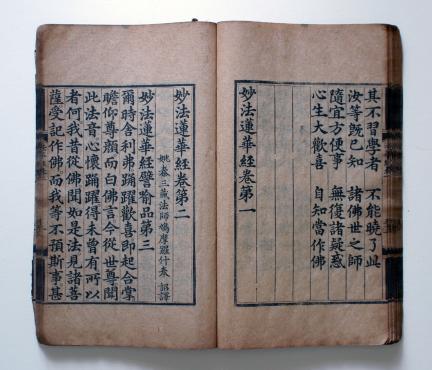 其不習學者 不能曉了此
汝等既已知 諸佛世之師
隨宜方便事 無復諸疑惑
心生大歡喜 自知當作佛
妙法蓮華經卷第一
妙法蓮華經卷第二
姚秦三藏法師鳩摩羅什奉 詔譯
妙法蓮華經譬喻品第三
爾時舍利弗踊躍歡喜即起合掌
瞻仰尊顏而白佛言今從世尊聞
此法音心懷踊躍得未曾有所以
者何我昔從佛聞如是法見諸菩
薩受記作佛而我等不預斯事甚